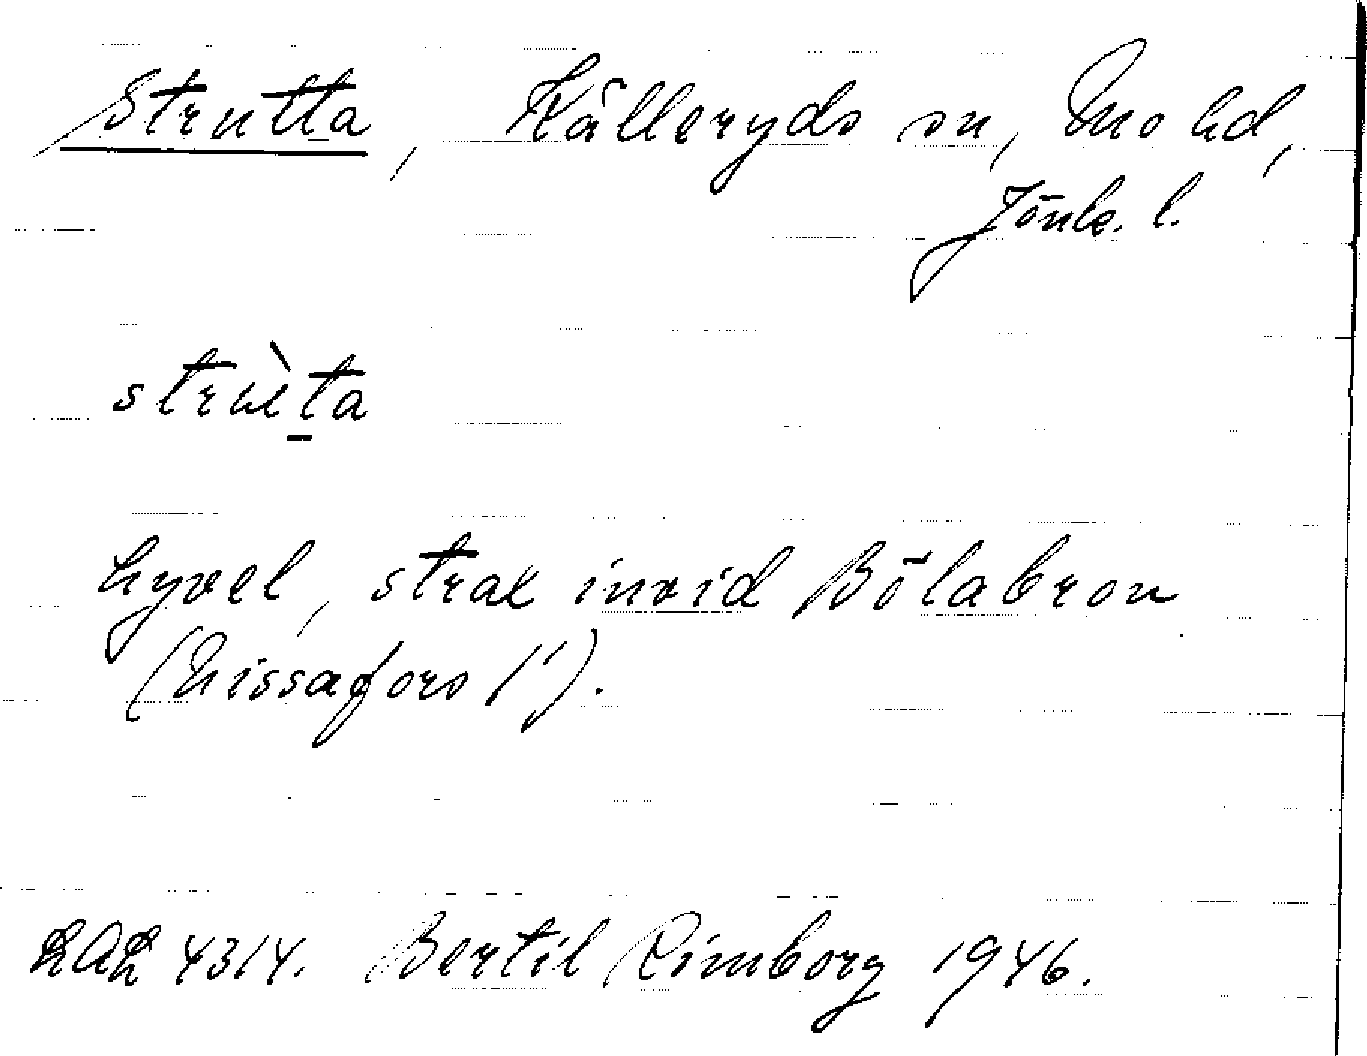 Strutta, Kålleryds sn, Mo hd,
Jönk. l.
strùta
hyvel, strax invid Bölabron
(Nissafors 1').
LAL 4314. Bertil Rimborg 1946.